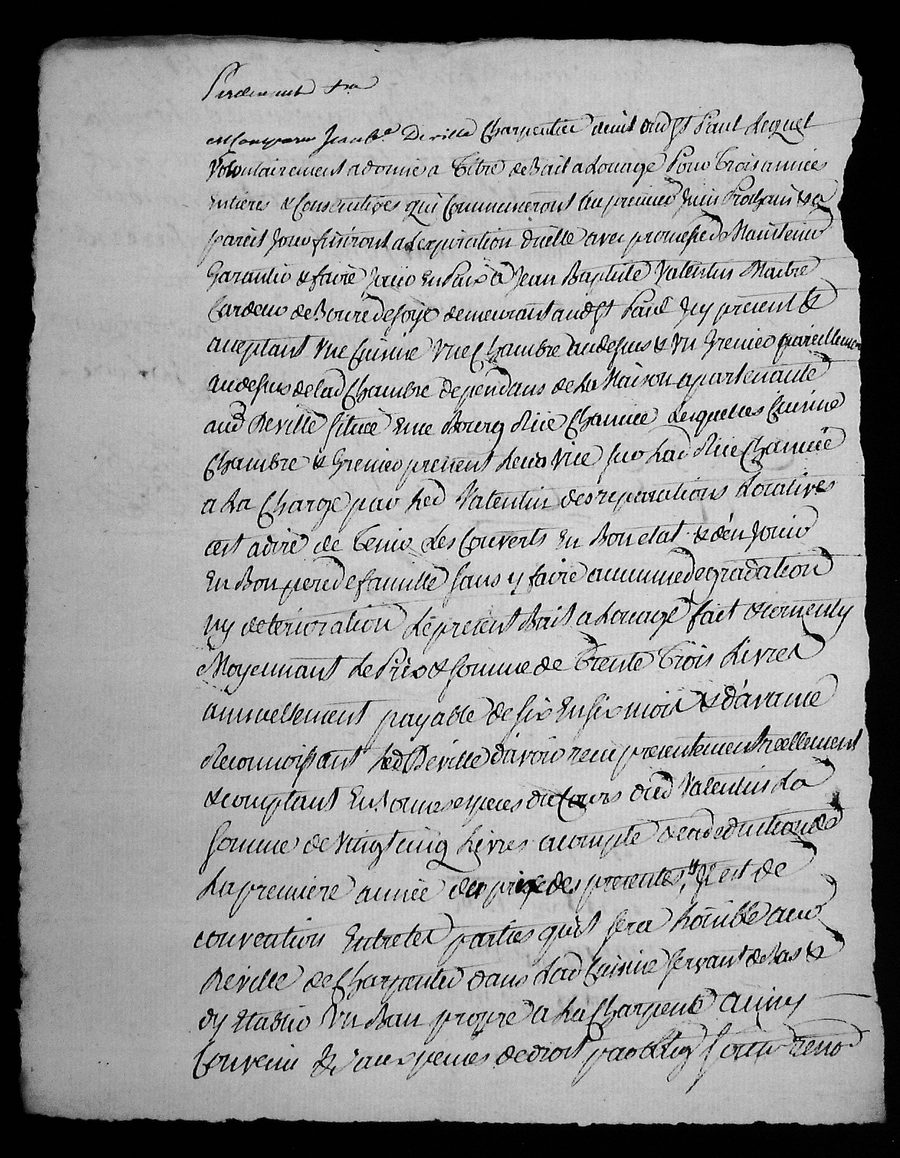 a Comparu Jean Bte Deville Charpentier aud St Paul Lequel
Volontairement a donné a Titre de Bail a Louage Pour Trois années
Entieres & Consecutives qui Commenceront au premier Juin Prochain & a
pareil Jour finiront a Lexpiration dicelle avec promesse de Maintenir
Garantir & faire Jouir En Paix a Jean Baptiste Valentin Maitre
Cardeur de Boure de soye demeurant aud St Paul Icy present &
aceptant Une Cuisine Une Chambre au desus & Un Grenier pareillement
au desus de lad Chambre dependans de La Maison apartenante
aud Deville Située Bourg Rue Chanciée Lesquelles Cuisine
Chambre & Grenier prenent Leurs Vue sur Lad Rue Chanciée
a La Charge par Led Valentin des reparations Locatives
cest adire de Tenir Les Couverts En Bon etat & d'en Jouir
En Bon pere de famille sans y faire aucunne degradation
ny deterioration Le present Bail a Louage fait
Moyennant Le Prix & somme de Trente Trois Livres
annuellement payable de six En six mois & d'avance
Reconnoissant Led Deville d'avoir reçu presentement reellement
& comptant En Bonnes especes du Cours dud Valentin La
somme de Vingt cinq Livres a compte & en deduction de
La premiere année du prix des presentes, Il est de
convention Entre les parties qu'il sera Loisible aud
Deville de Charpenter dans Lad Cuisine servant de Bas &
dy Etablir Un Ban propre a La Charpente ainsy
Convenu & aux peines de droit par